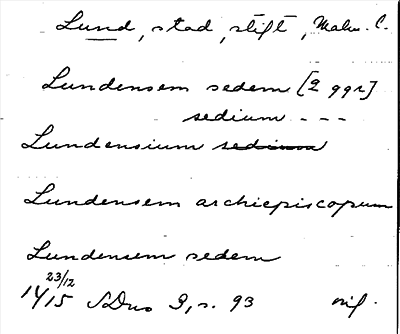 Lund, stad, stift, Malm. C.
Lundensem sedem [2 ggr]
sedium - - -
Lundensium sedium
Lundensem archiepiscopum
Lundensem sedem
23/12
1415 SDns I, s. 93 orig.